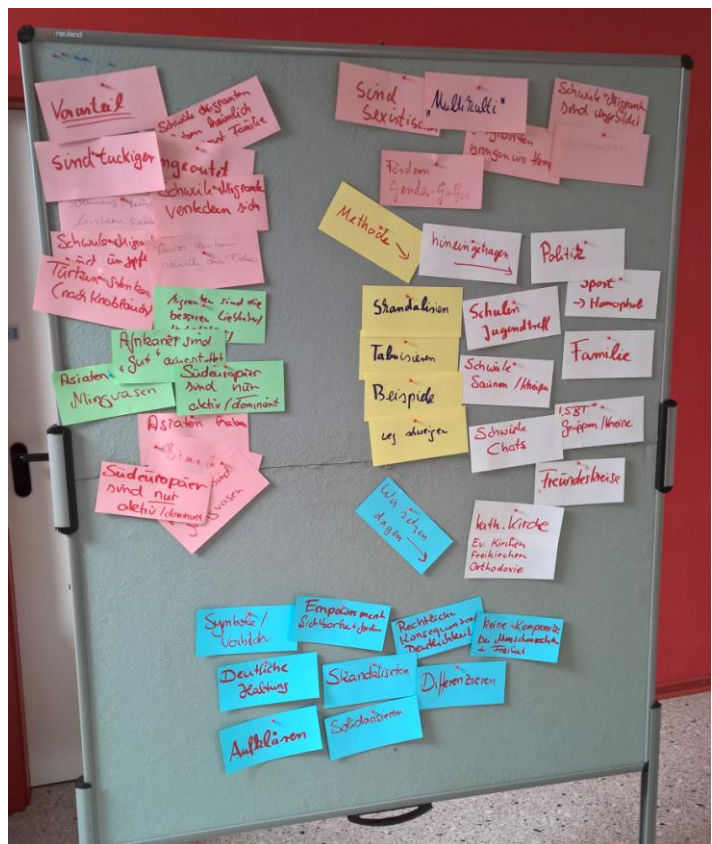 neuland
Vorurteil
Schwule Migranten
Familie
sind tuckiger
ngeoutet
Schwule Migrant
verstecken sich
Türken stinken
(nach Knoblauch)
sind die
besseren Liebhaber
Afrikaner sind
"gut"
Asiaten
Mingvasen
Südeuropäer
sind nur
aktiv/dominant
Asiaten haben
Südeuropäer
sind nur
aktiv/dominant
vasen
Sind
Sexistisch
"Multikulti"
Schwule Migrant
sind ungebildet
bringen ins
Fördern
Gender-Gaga
Methode
hineingetragen
Politik
Sport
→ Homophob
Skandalisieren
Tabuisieren
Beispiele
weg schweigen
Schulen
Jugendtreff
Schwule
Saunen/Kneipe
Schwule
Chats
Familie
LSBT
Gruppen/Kneipe
Freundeskreise
kath. Kirche
Ev. Kirchen
Freikirchen
Orthodoxie
Wir setzen
dagegen
Symbole/
Vorbilder
Empowerment
Sichtbarkeit fördern
Rechtliche
Konsequenzen/
Deutlichkeit
keine Kompromisse
bei Menschenrechten
+ Freiheit
Deutliche
Haltung
Skandalisieren
Differenzieren
Aufklären
Solidarisieren